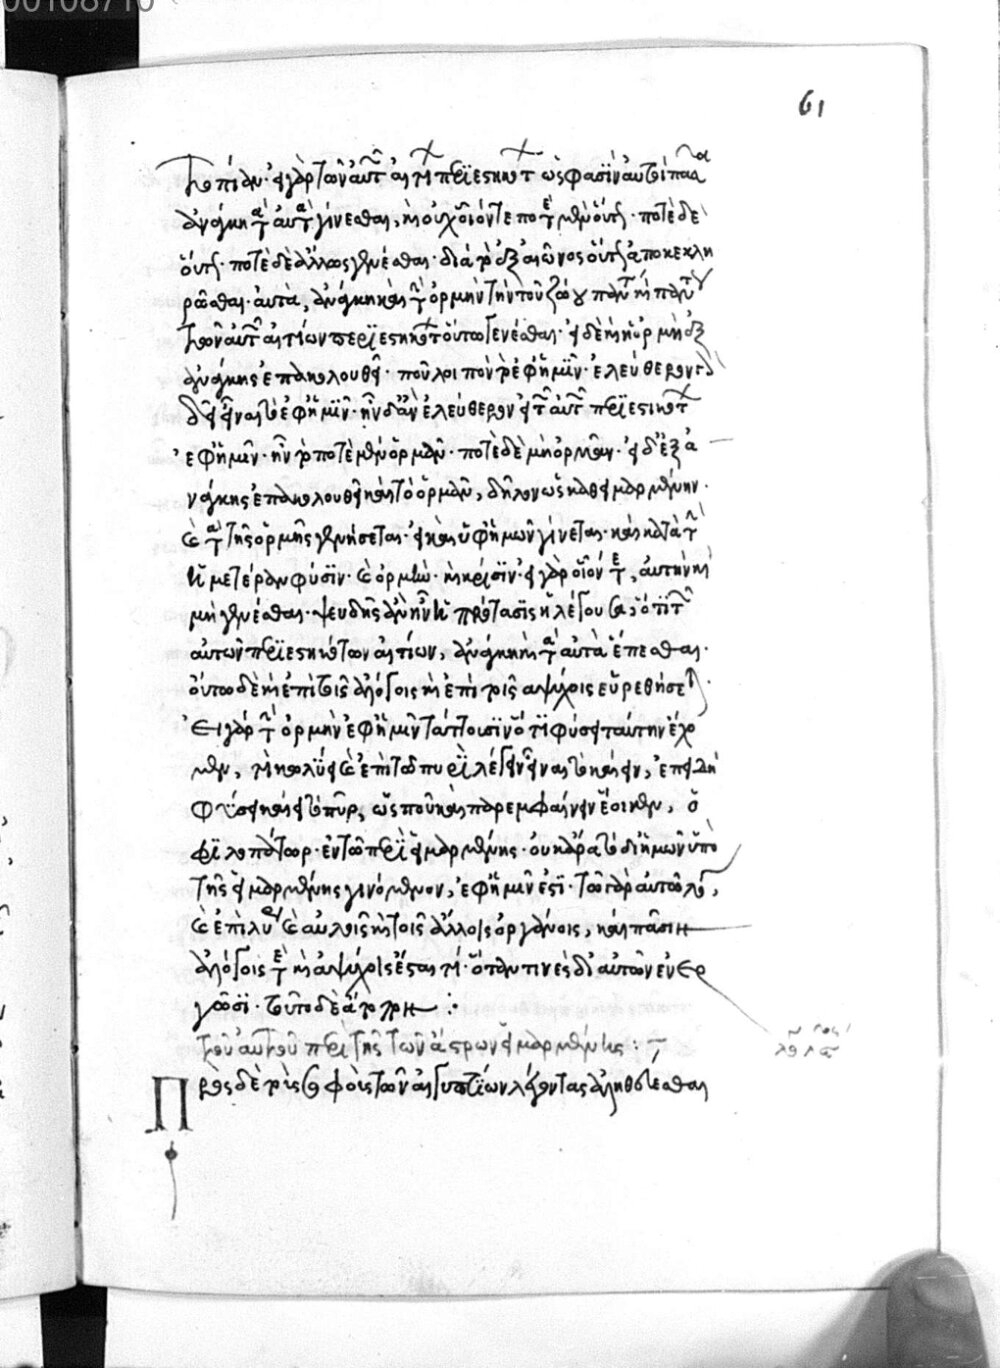 εἰ γὰρ τῶν αὐτῶν αἰτίων περϊεστηκότων ὡς φασὶν αὐτοὶ πᾶσα
ἀνάγκη τὰ αὐτὰ γίνεσθαι, καὶ οὐχ οἷόν τε ποτὲ μὲν οὕτως· ποτὲ δὲ
οὕτως· ποτὲ δὲ ἄλλως γενέσθαι· διὰ τὸ ἐξ αἰῶνος οὕτως ἀποκεκλη
ρῶσθαι αὐτὰ, ἀνάγκη καὶ τὴν ὁρμὴν τὴν τοῦ ζώου πάντη καὶ πάντως
τῶν αὐτῶν αἰτίων περϊεστηκότων οὕτω γενέσθαι· εἰ δὲ καὶ ἡ ὁρμὴ ἐξ
ἀνάγκης ἐπακολουθεῖ· ποῦ λοιπὸν τὸ ἐφ' ἡμῖν· ἐλεύθερον γὰρ
δεῖ εἶναι τὸ ἐφ' ἡμῖν· ἦν δ' ἂν ἐλεύθερον εἰ τῶν αὐτῶν περϊεστηκότων
ἐφ' ἡμῖν· ἦν τὸ ποτὲ μὲν ὁρμᾶν· ποτὲ δὲ μὴ ὁρμᾶν· εἰ δ' ἐξ ἀ
νάγκης ἐπακολουθεῖ καὶ τὸ ὁρμᾶν, δῆλον ὡς καθ' εἱμαρμένην·
καὶ τὰ τῆς ὁρμῆς γενήσεται· εἰ καὶ ὑφ' ἡμῶν γίνεται· καὶ κατὰ τὴν
ἡμετέραν φύσϊν· καὶ ὁρμὴν· καὶ κρίσϊν· εἰ γὰρ οἷόν τε, αὐτὴν καὶ
μὴ γενέσθαι· ψευδὴς ἂν ἦν ἡ πρότασϊς ἡ λέγουσα, ὅτϊ τῶν
αὐτῶν περϊεστηκότων αἰτίων, ἀνάγκη καὶ τὰ αὐτὰ ἕπεσθαι·
οὕτω δὲ καὶ ἐπὶ τοῖς ἀλόγοις καὶ ἐπὶ τοῖς ἀψύχοις εὑρεθήσεται·
Εἰ γὰρ τὴν ὁρμὴν ἐφ' ἡμῖν τάττουσϊν ὅτϊ φύσει ταύτην ἔχο
μεν, τί κωλύει καὶ ἐπὶ τῶ πυρὶ λέγειν εἶναι τὸ καίειν, ἐπειδὴ
φύσει καίει τὸ πῦρ, ὥς που καὶ παρεμφαίνειν ἔοικεν, ὁ
φϊλοπάτωρ· ἐν τῶ περὶ εἱμαρμένης· οὐκ ἄρα τὸ δι' ἡμῶν ὑπὸ
τῆς εἱμαρμένης γινόμενον, ἐφ' ἡμῖν ἐστϊ· τῶ γὰρ αὐτῶ λόγω,
καὶ ἐπὶ λύρα καὶ αὐλοῖς καὶ τοῖς ἄλλοις ὀργάνοις, καὶ πᾶσιν
ἀλόγοις τε καὶ ἀψύχοις ἔσται τί· ὅταν τινὲς δι' αὐτῶν ἐνερ
γῶσϊ· τοῦτο δὲ ἄτοπον :·
τοῦ αὐτοῦ περὶ τῆς τῶν ἄστρων εἱμαρμένης :
Πρὸς δὲ τοὺς σοφοὺς τῶν αἰγυπτίων λέγοντας ἀληθεύεσθαι
61